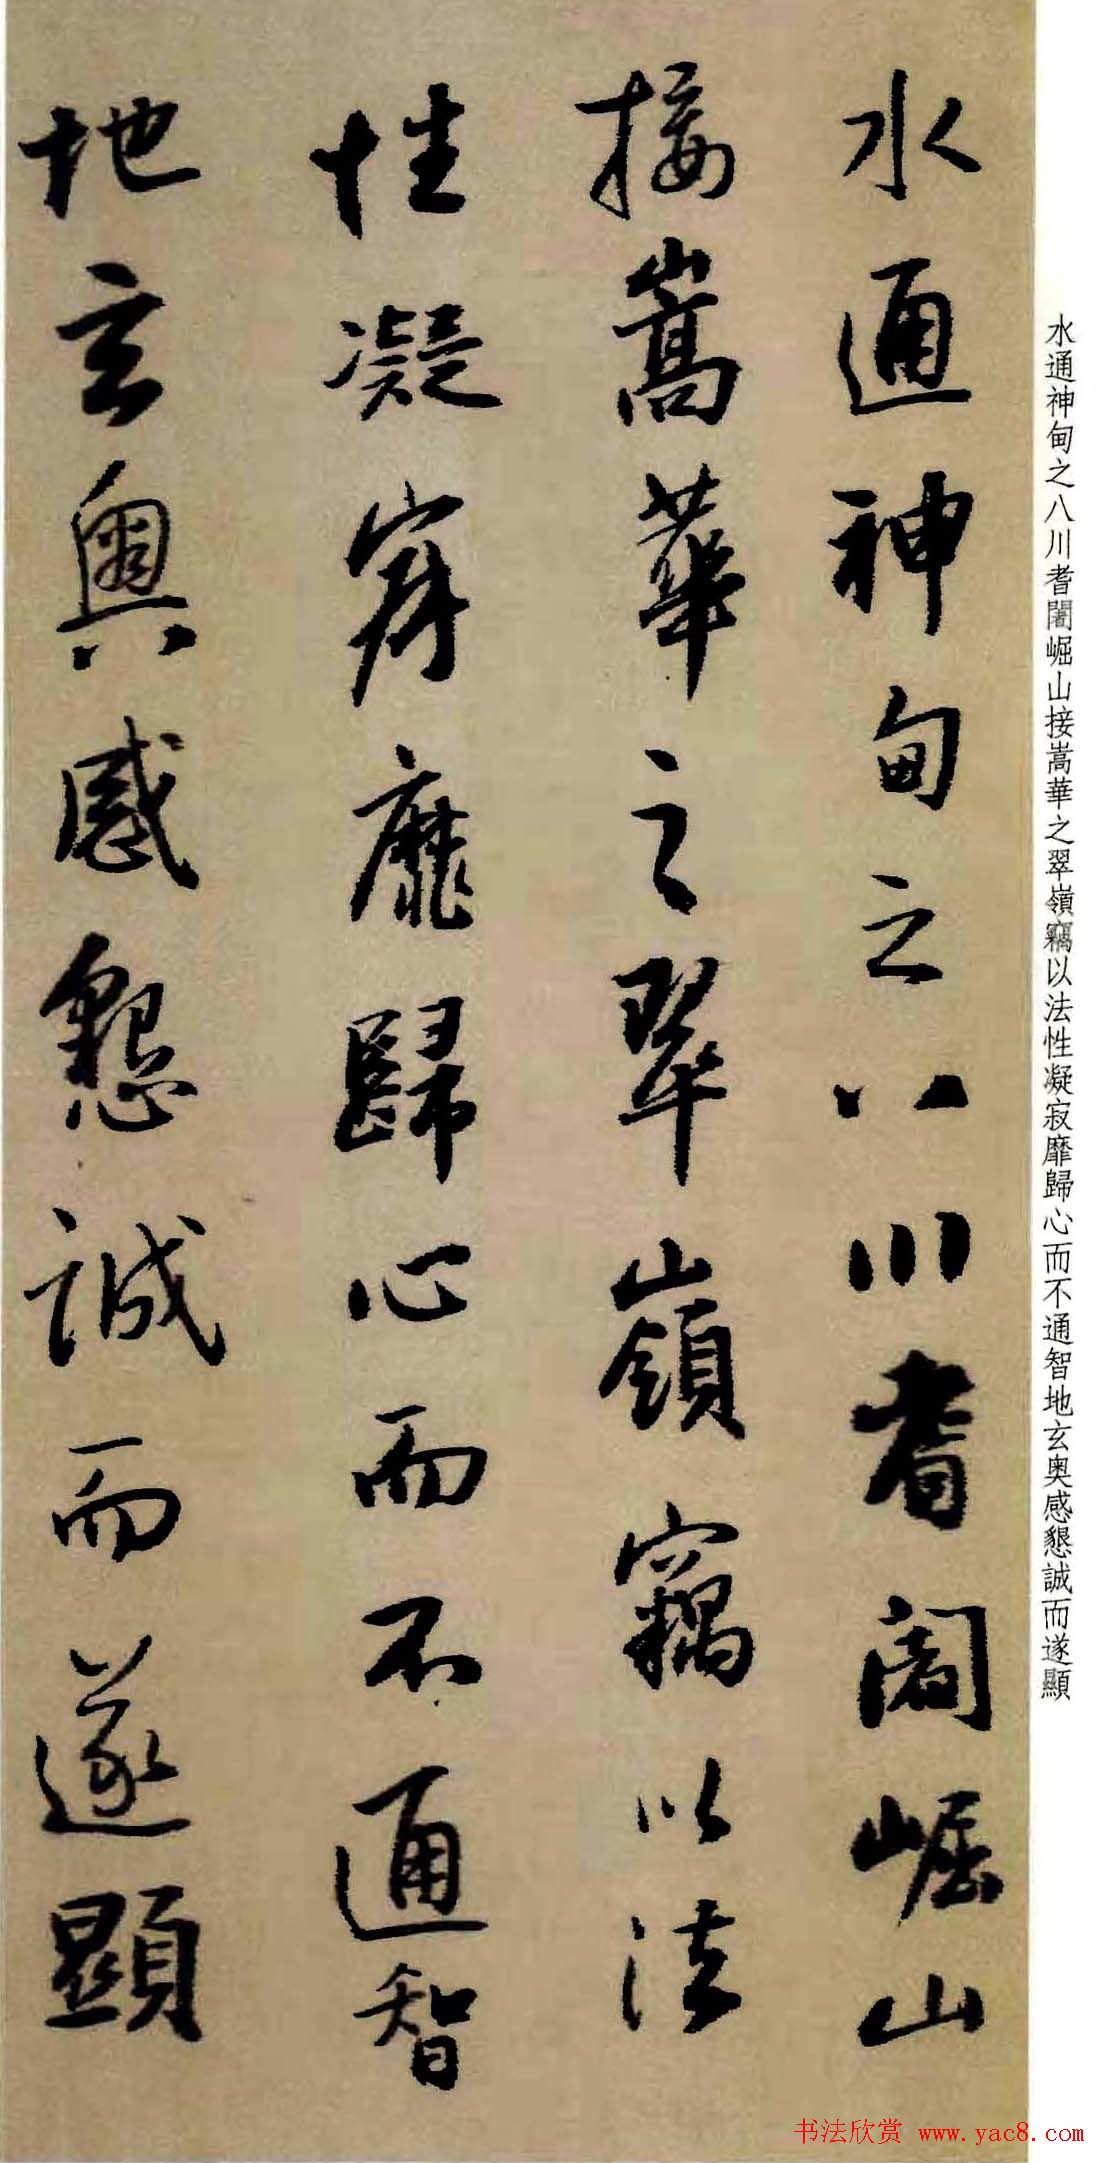 水通神甸之八川耆闍崛山
接嵩華之翠嶺竊以法
性凝寂靡歸心而不通智
地玄奧感懇誠而遂顯
水通神甸之八川耆闍崛山接嵩華之翠嶺竊以法性凝寂靡歸心而不通智地玄奥感懇誠而遂顯
书法欣赏 www.yac8.com